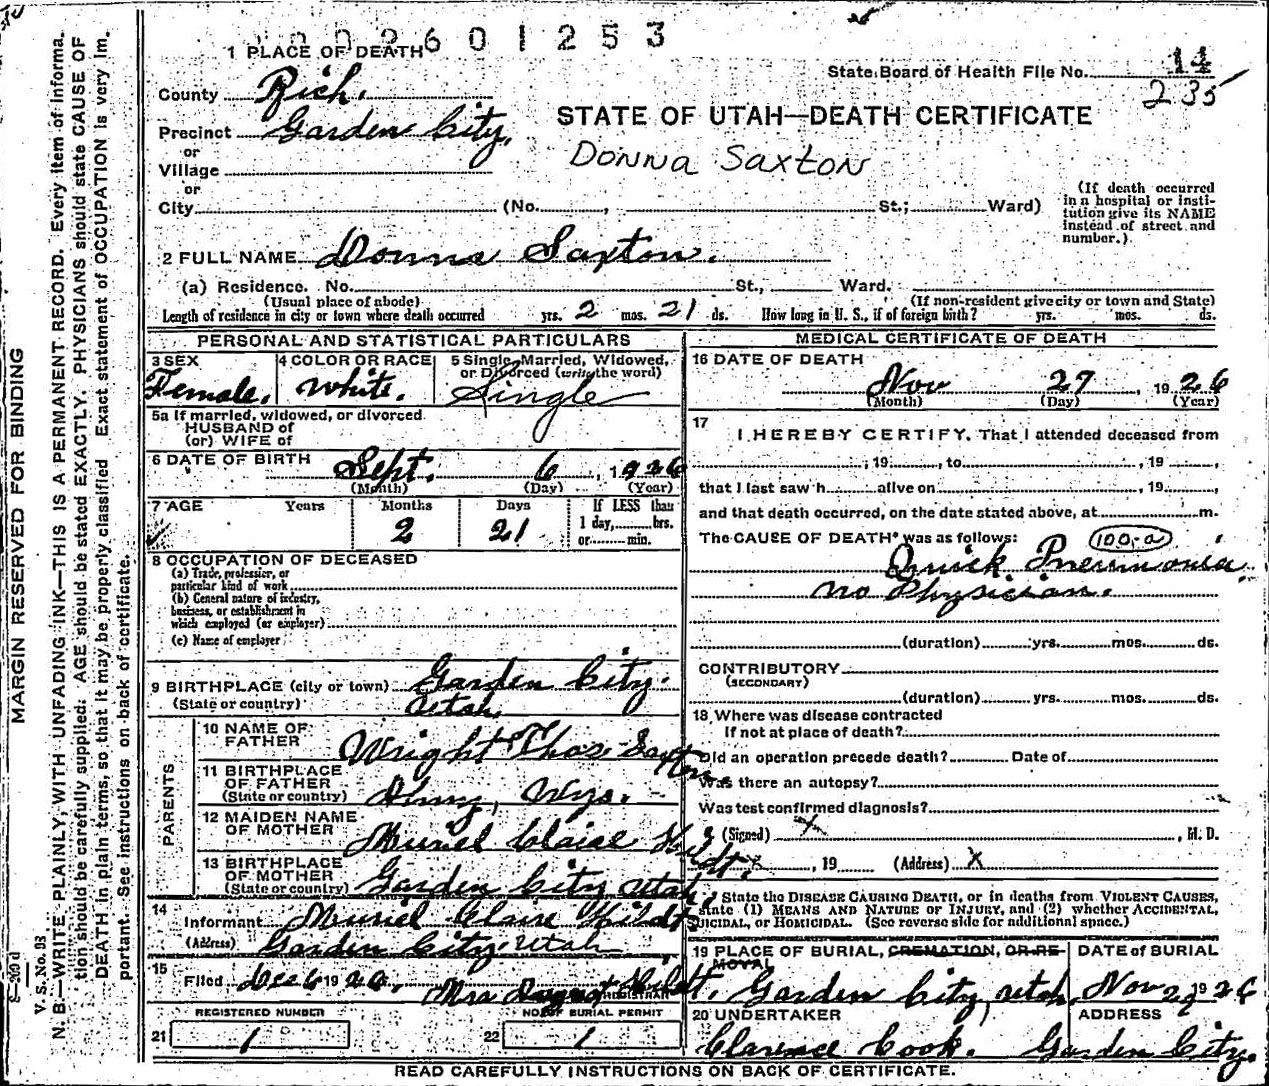 2601253
1 PLACE OF DEATH
State Board of Health File No. 14
235
County Rich.
STATE OF UTAH—DEATH CERTIFICATE
Precinct Garden City,
or
Donna Saxton
Village
or
City (No. , St.; Ward)
(If death occurred
in a hospital or insti-
tution give its NAME
instead of street and
number.)
2 FULL NAME Donna Saxton.
(a) Residence. No. St., Ward.
(Usual place of abode) (If non-resident give city or town and State)
Length of residence in city or town where death occurred yrs. 2 mos. 21 ds. How long in U. S., if of foreign birth? yrs. mos. ds.
PERSONAL AND STATISTICAL PARTICULARS
3 SEX
Female.
4 COLOR OR RACE
White.
5 Single, Married, Widowed,
or Divorced (write the word)
Single
5a If married, widowed, or divorced
HUSBAND of
(or) WIFE of
6 DATE OF BIRTH Sept. 6, 1926
(Month) (Day) (Year)
7 AGE Years Months Days If LESS than
2 21 1 day, hrs.
or min.
8 OCCUPATION OF DECEASED
(a) Trade, profession, or
particular kind of work
(b) General nature of industry,
business, or establishment in
which employed (or employer)
(c) Name of employer
9 BIRTHPLACE (city or town) Garden City.
(State or country) Utah.
PARENTS
10 NAME OF
FATHER Wright Thos. Saxton.
11 BIRTHPLACE
OF FATHER
(State or country) Wyo.
12 MAIDEN NAME
OF MOTHER Muriel Claire Hildt.
13 BIRTHPLACE
OF MOTHER
(State or country) Garden City Utah.
14
Informant Muriel Claire Hildt
(Address) Garden City. Utah
15
Filed Dec 6 1926. Mrs Hildt.
REGISTRAR
REGISTERED NUMBER
21 1
NO. OF BURIAL PERMIT
22 1
MEDICAL CERTIFICATE OF DEATH
16 DATE OF DEATH
Nov 27, 1926
(Month) (Day) (Year)
17
I HEREBY CERTIFY, That I attended deceased from
, 19 , to , 19 ,
that I last saw h alive on , 19 ,
and that death occurred, on the date stated above, at m.
The CAUSE OF DEATH* was as follows: 100-a
Quick Pneumonia,
no Physician.
(duration) yrs. mos. ds.
CONTRIBUTORY
(SECONDARY)
(duration) yrs. mos. ds.
18 Where was disease contracted
If not at place of death?
Did an operation precede death? Date of
Was there an autopsy?
Was test confirmed diagnosis?
(Signed) X , M. D.
X , 19 (Address) X
State the DISEASE CAUSING DEATH, or in deaths from VIOLENT CAUSES,
state (1) MEANS AND NATURE OF INJURY, and (2) whether ACCIDENTAL,
SUICIDAL, or HOMICIDAL. (See reverse side for additional space.)
19 PLACE OF BURIAL, CREMATION, OR RE-
MOVAL
Garden City, Utah.
DATE OF BURIAL
Nov 29 1926
20 UNDERTAKER
Clarence Cook.
ADDRESS
Garden City.
READ CAREFULLY INSTRUCTIONS ON BACK OF CERTIFICATE.
MARGIN RESERVED FOR BINDING
V. S. No. 83
N. B.—WRITE PLAINLY, WITH UNFADING INK—THIS IS A PERMANENT RECORD. Every item of informa-
tion should be carefully supplied. AGE should be stated EXACTLY. PHYSICIANS should state CAUSE OF
DEATH in plain terms, so that it may be properly classified. Exact statement of OCCUPATION is very im-
portant. See instructions on back of certificate.